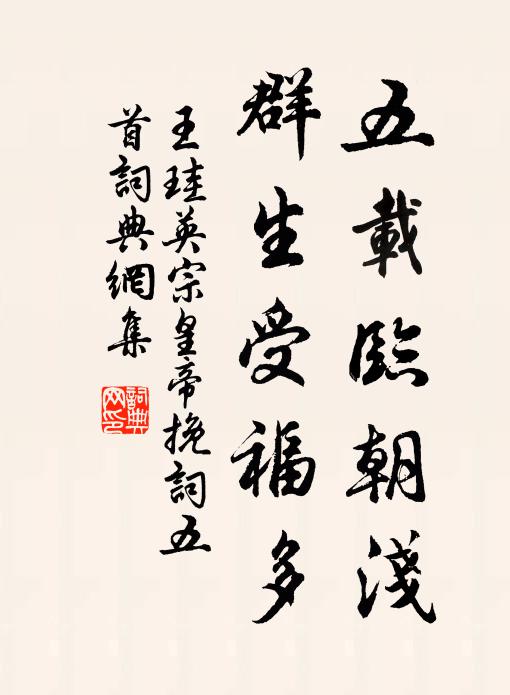 五載臨朝淺
群生受福多
王珪英宗皇帝挽詞五
首詞典網集
詞典
网印